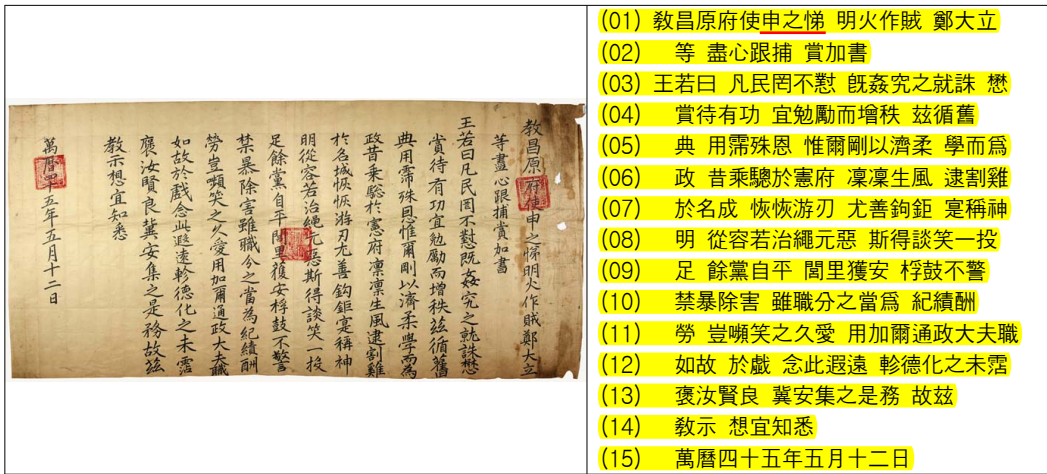 教昌原府使申之悌明火作賊鄭大立
等盡心跟捕賞加書
王若曰凡民罔不憝既姦宄之就誅懋
賞待有功宜勉勵而增秩玆循舊
典用霈殊恩惟爾剛以濟柔學而為
政昔乘驄於憲府凜凜生風逮割雞
於名城恢恢游刃尤善鈎鉅寔稱神
明從容若治繩元惡斯得談笑一投
足餘黨自平閭里獲安桴鼓不警
禁暴除害雖職分之當為紀績酬
勞豈嚬笑之久愛用加爾通政大夫職
如故於戲念此遐遠軫德化之未霑
褒汝賢良冀安集之是務故玆
教示想宜知悉
萬曆四十五年五月十二日
(01) 敎昌原府使申之悌 明火作賊 鄭大立
(02) 等 盡心跟捕 賞加書
(03) 王若曰 凡民罔不懟 旣姦究之就誅 懋
(04) 賞待有功 宜勉勵而增秩 玆循舊
(05) 典 用霈殊恩 惟爾剛以濟柔 學而爲
(06) 政 昔乘驄於憲府 凜凜生風 逮割雞
(07) 於名成 恢恢游刃 尤善鉤鉅 寔稱神
(08) 明 從容若治繩元惡 斯得談笑一投
(09) 足 餘黨自平 閭里獲安 桴鼓不警
(10) 禁暴除害 雖職分之當爲 紀績酬
(11) 勞 豈嚬笑之久愛 用加爾通政大夫職
(12) 如故 於戱 念此遐遠 軫德化之未霑
(13) 褒汝賢良 冀安集之是務 故玆
(14) 敎示 想宜知悉
(15) 萬曆四十五年五月十二日